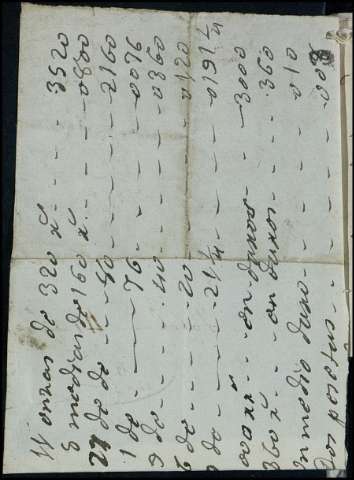 11 onzas de 320 rs - - - 3520
5 medias de 160 rs - - - 0800
27 do do - - - 80 - - - 2160
1 do - - - 76 - - - 0076
9 do - - - 40 - - - 0360
6 do - - - 20 - - - 0120
9 do - - - 21 1/4 - - - 0191 1/4
rs - - en duros - - 3000
360 rs - - en duros - - - 360
un medio duro - - - 010
Dos pesetas - - - 008